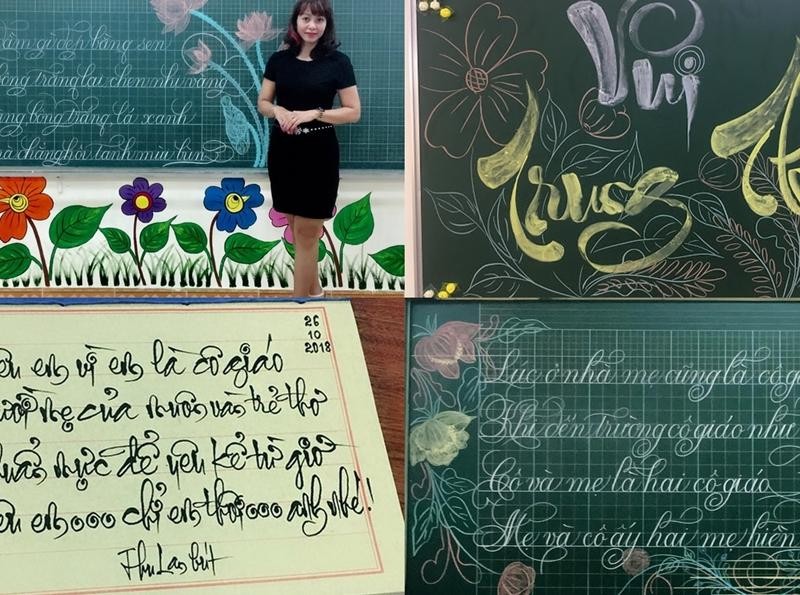 ầm gì đẹp bằng sen
bông trắng lại chen nhị vàng
ng bông trắng lá xanh
à chẳng hôi tanh mùi bùn
Vui
Trung
26
10
2018
êu em vì em là cô giáo
ười mẹ của muôn vàn trẻ thơ
uẩn mực để yêu kể từ giờ
êu em... chỉ em thôi... anh nhé!
Thu Lan bút
Lúc ở nhà mẹ cũng là cô gi
Khi đến trường cô giáo như
Cô và mẹ là hai cô giáo
Mẹ và cô ấy hai mẹ hiền